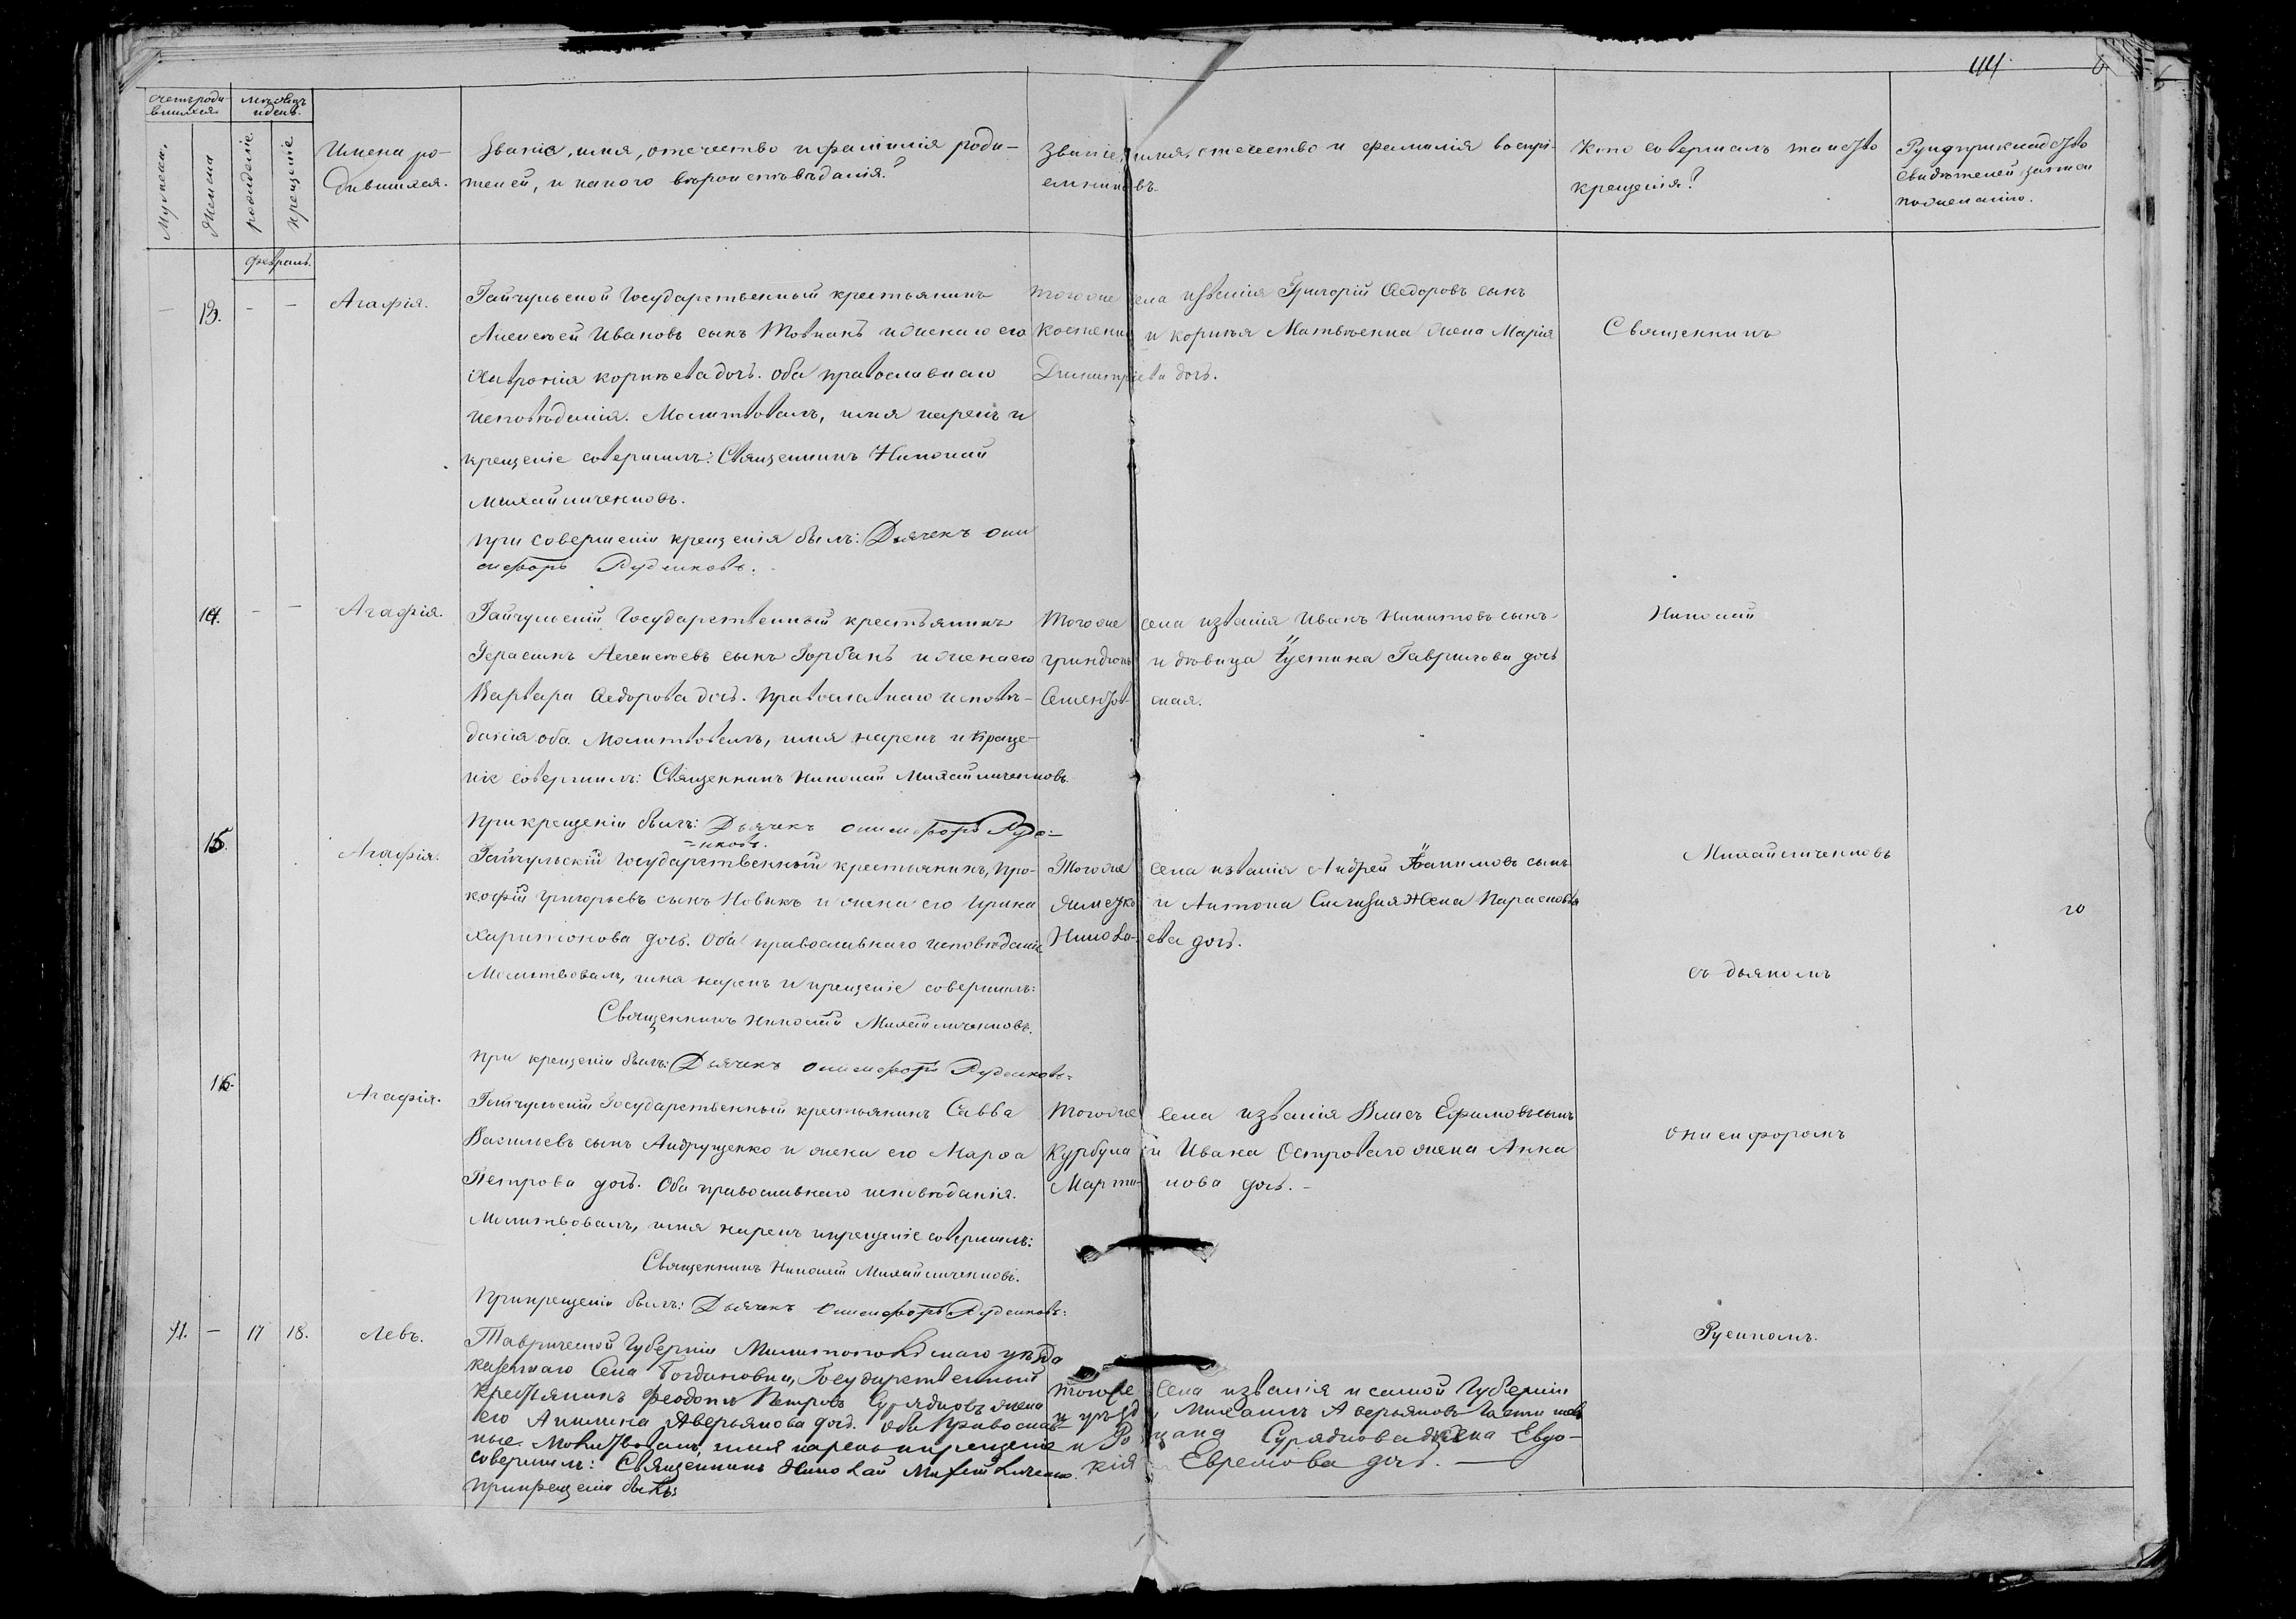 44.
Счетъ роди-
вшихся.
мѣсяцъ
и день.
Мужеска,
Женска
рожденіе.
крещеніе
Имена ро-
дившихся.
Званіе, имя, отчество и фамилія роди-
телей, и какого вѣроисповѣданія?
Званіе, имя, отчество и фамилія воспрі-
емниковъ.
Кто совершалъ таинство
крещенія?
Рукоприкладство
свидѣтелей записи
по желанію.
Февраль.
– 13. – –
Агафія.
Гайчульской Государственный крестьянинъ
Алексѣй Ивановъ сынъ Товпакъ и жена его
Хавронія Корнѣева дочь. Оба православнаго
исповѣданія. Молитвовалъ, имя нарекъ и
крещеніе совершилъ: Священникъ Николай
Михайличенковъ.
при совершеніи крещенія былъ: Дьячекъ Они
сифоръ
Тогоже села и званія Григорій Ѳедоровъ сынъ
и Корнѣя Матвѣенка жена Марія
Димитріева дочь.
Священникъ
14. – –
Агафія.
Гайчульскій Государственный крестьянинъ
Герасимъ Алексѣевъ сынъ Горбань и жена его
Варвара Ѳедорова дочь. Православнаго исповѣ-
данія оба. Молитвовалъ, имя нарекъ и креще-
ніе совершилъ: Священникъ Николай Михайличенковъ.
При крещеніи былъ: Дьячекъ Онисифоръ
Тогоже села и званія Иванъ Никитовъ сынъ
и дѣвица Устина Гаврилова дочь
Николай
15.
Агафія.
Гайчульскій Государственный крестьянинъ, Про-
кофій Григорьевъ сынъ Новикъ и жена его Ирина
Харитонова дочь. Оба православнаго исповѣданія
Молитвовалъ, имя нарекъ и крещеніе совершилъ:
Священникъ Николай Михайличенковъ.
При крещеніи былъ: Дьячекъ Онисифоръ
Тогоже села и званія Андрей сынъ
и Антона жена Параскова
Никола- ева дочь.
Михайличенковъ
съ дьякомъ
16.
Агафія.
Гайчульскій Государственный крестьянинъ Савва
Васильевъ сынъ Андрущенко и жена его Марѳа
Петрова дочь. Оба православнаго исповѣданія.
Молитвовалъ, имя нарекъ и крещеніе совершилъ:
Священникъ Николай Михайличенковъ.
При крещеніи былъ: Дьячекъ Онисифоръ
Тогоже села и званія Ефимовъ сынъ
Курбула и Ивана Островаго жена Анна
Марти- нова дочь. –
Онисифоромъ
11. – 17 18.
Левъ.
Таврической Губерніи Мелитопольскаго уѣзда
казеннаго Села Богдановки, Государственный
крестьянинъ Феодотъ Петровъ жена
его Акилина Аверьянова дочь. Оба Православ-
ные. Молитвовалъ, имя нарекъ и крещеніе
совершилъ: Священникъ Николай
При крещеніи былъ:
Тогоже Села и званія и самой Губерніи
и уѣзда, Михаилъ Аверьяновъ
и жена Евдо-
кія Евремова дочь. –